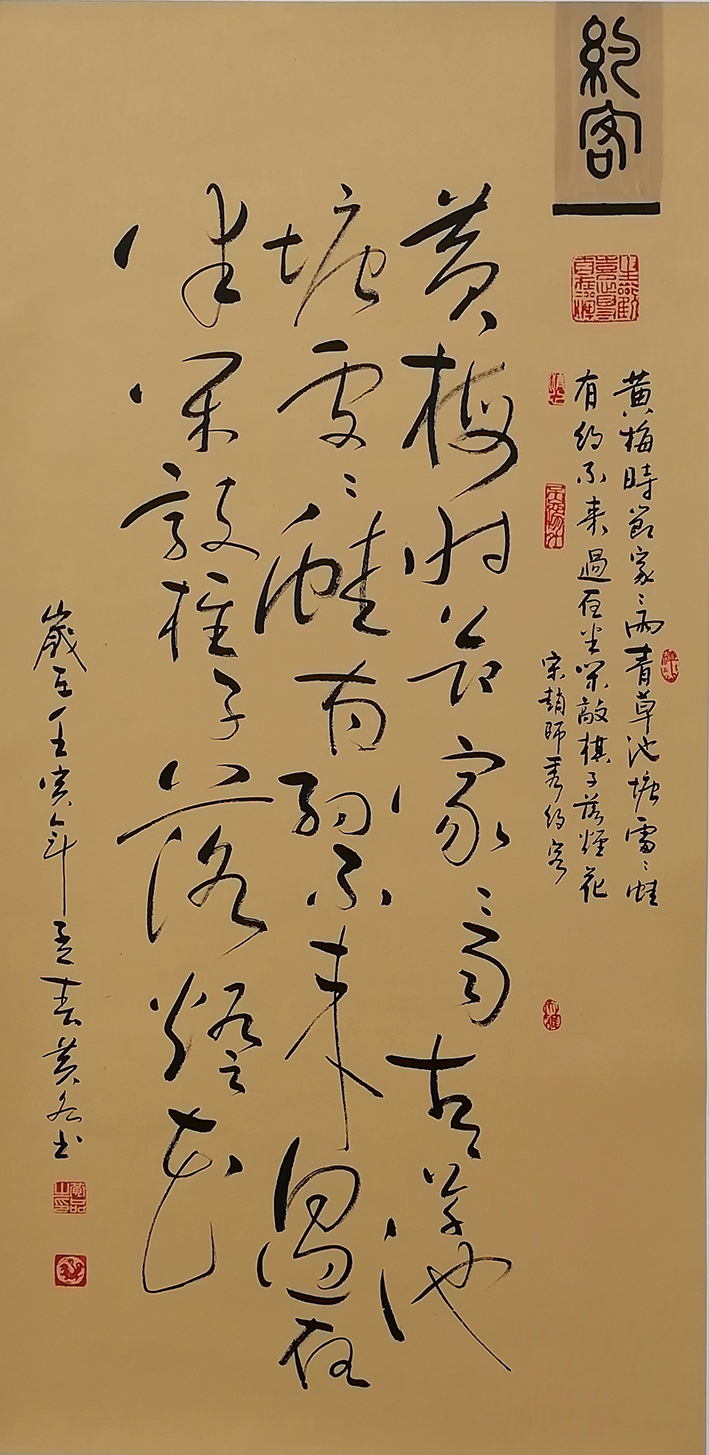 約客
黄梅時節家〻雨青草池塘處〻蛙
有約不来過夜半閑敲棋子落燈花
宋趙師秀約客
黄梅时节家〻雨青草池
塘處〻蛙有約不来過夜
半閑敲棋子落燈花
歲在壬寅年孟春黄书